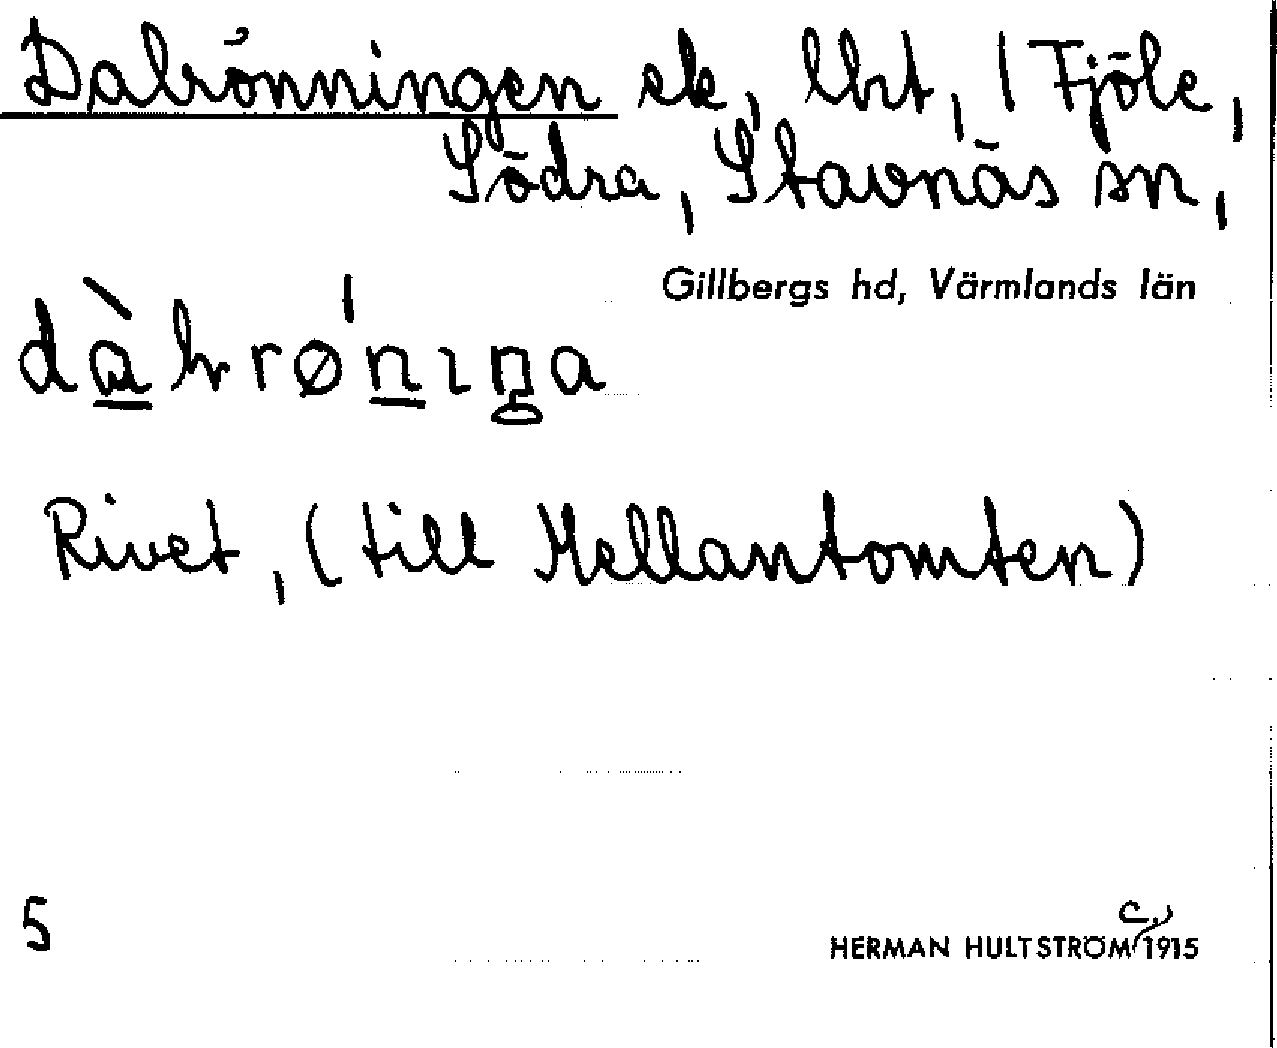 Dalrönningen ek, lht, 1 Fjöle,
Södra, Stavnäs sn,
Gillbergs hd, Värmlands län
Rivet, (till Mellantomten)
5
HERMAN HULTSTRÖM c. 1915